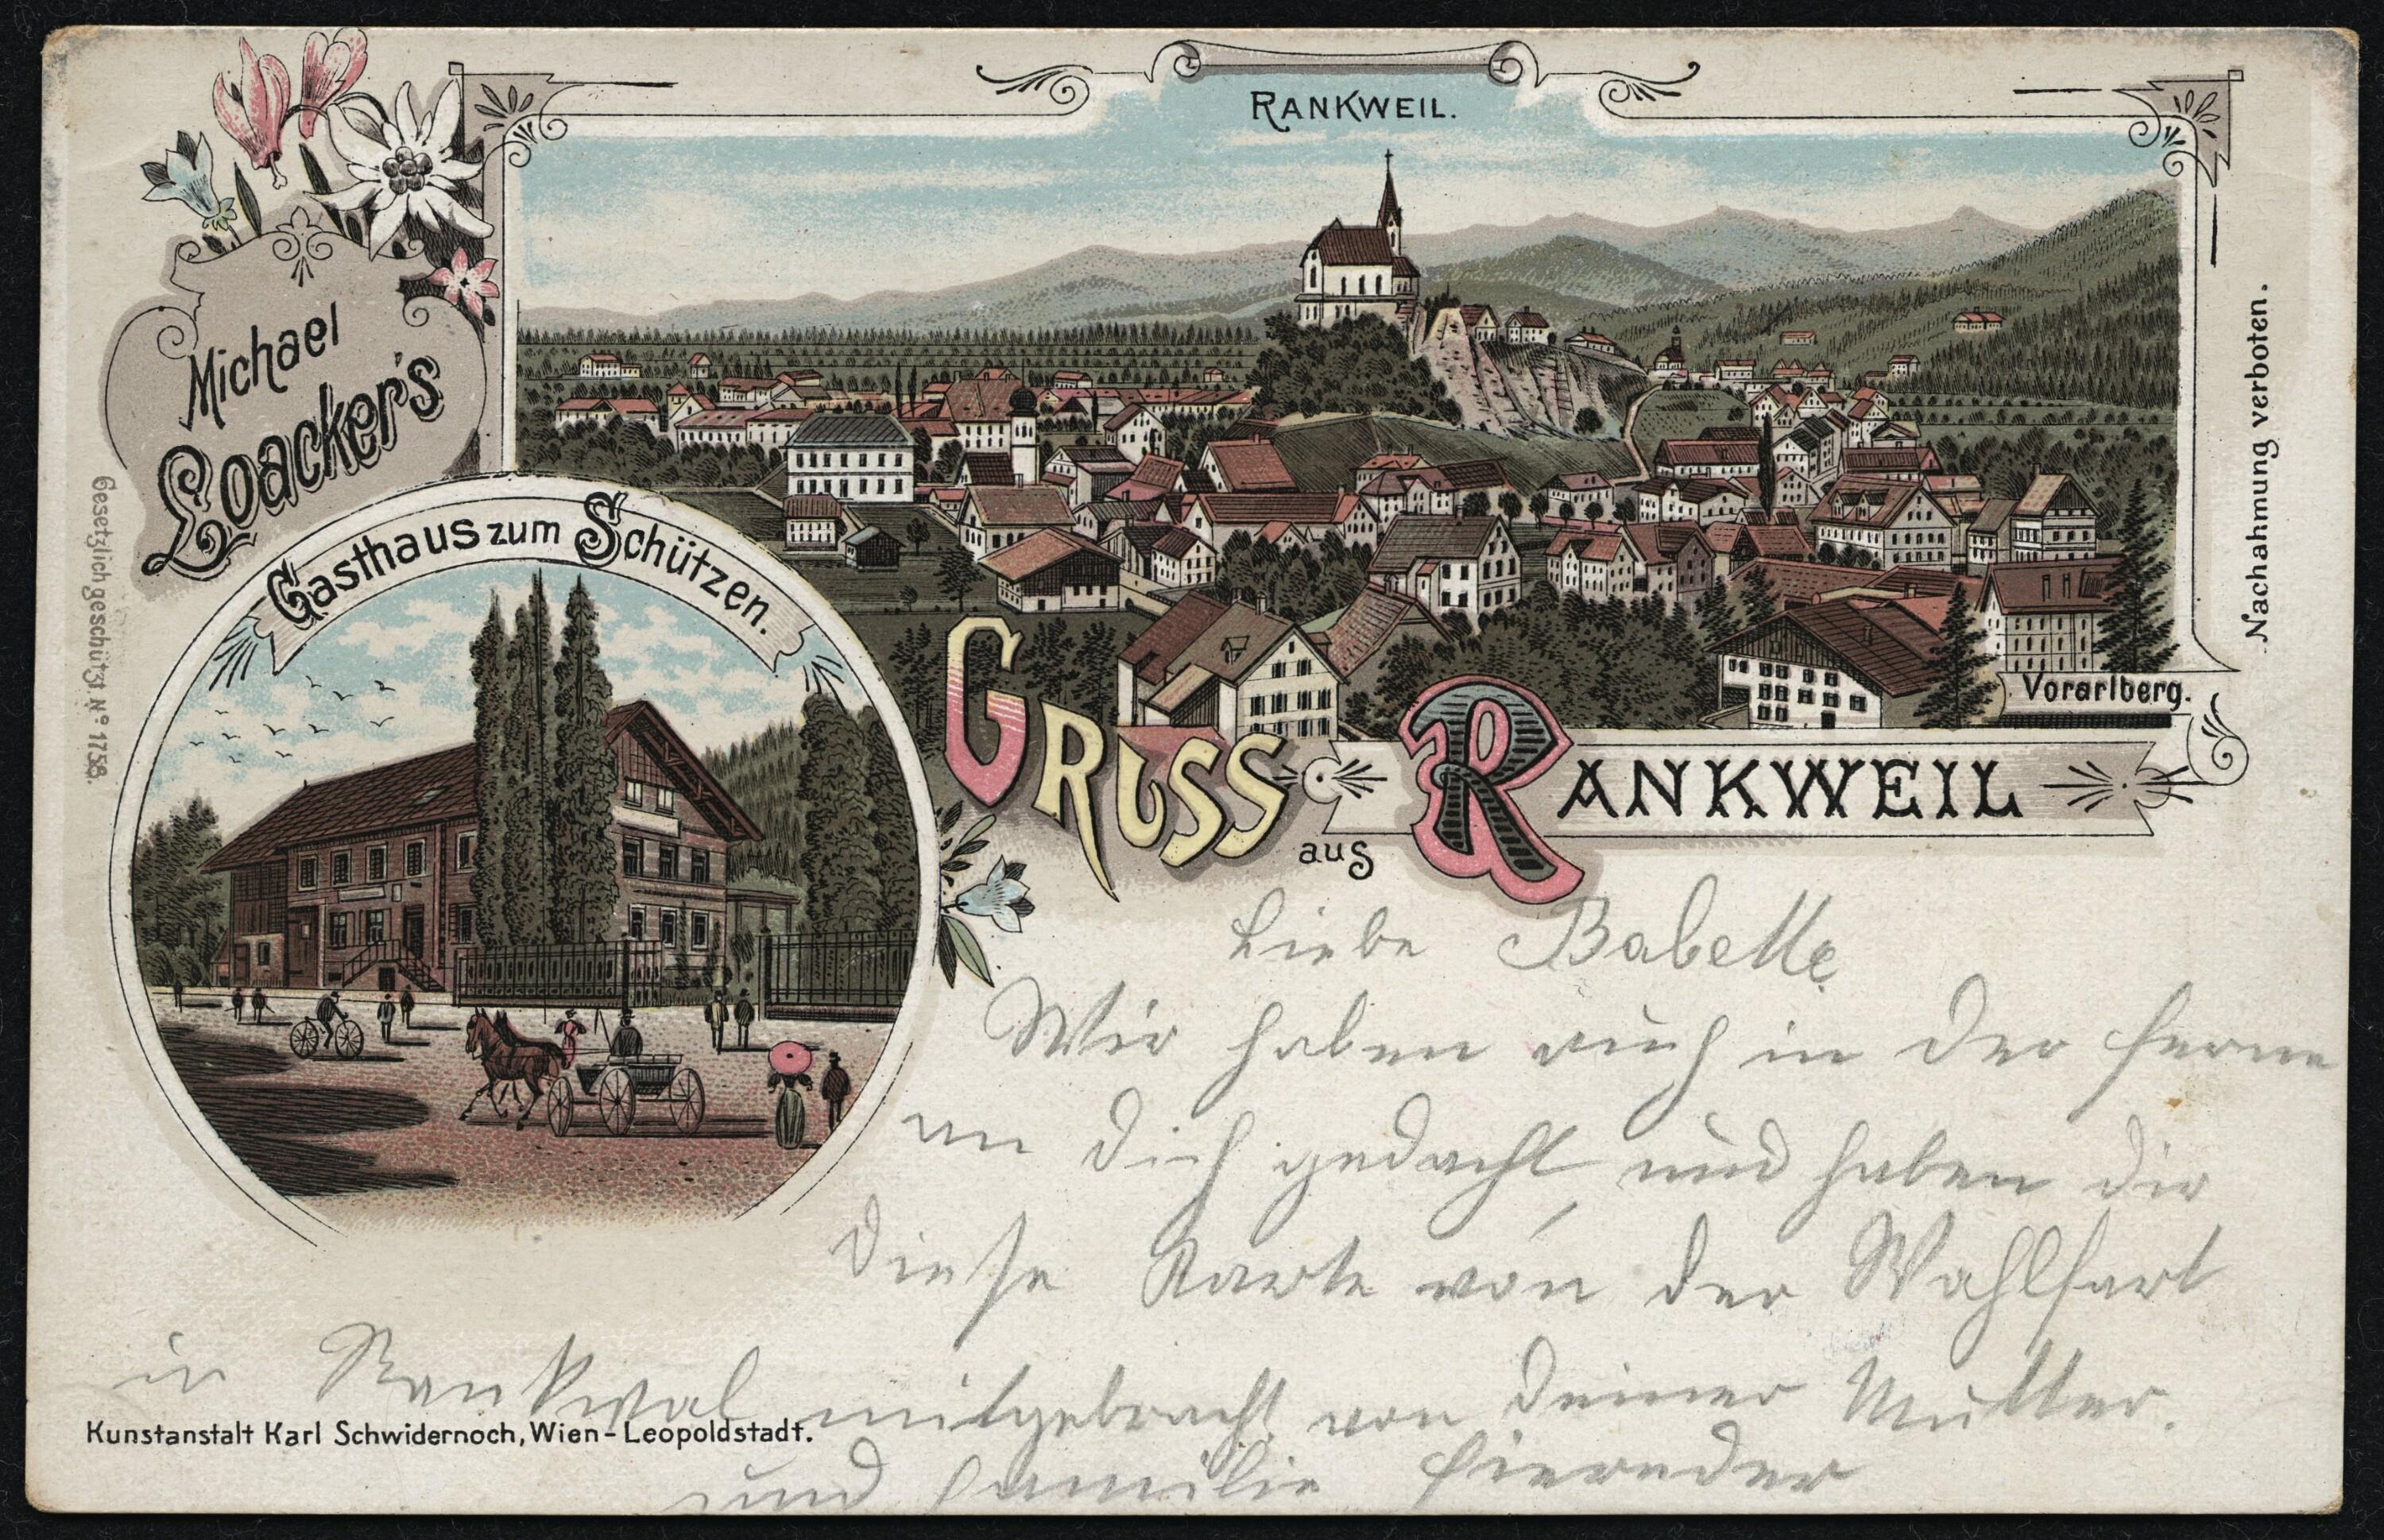 RANKWEIL.
Michael
Loacker's
Gasthaus zum Schützen.
Gesetzlich geschützt No 1758.
Nachahmung verboten.
Vorarlberg.
GRUSS
aus
RANKWEIL
Liebe Babette
Wir haben auch in der ferne
an dich gedacht, und haben dir
diese Karte von der Wahlfart
in Rankwal mitgebracht von deiner Mutter.
und familie
Kunstanstalt Karl Schwidernoch, Wien-Leopoldstadt.